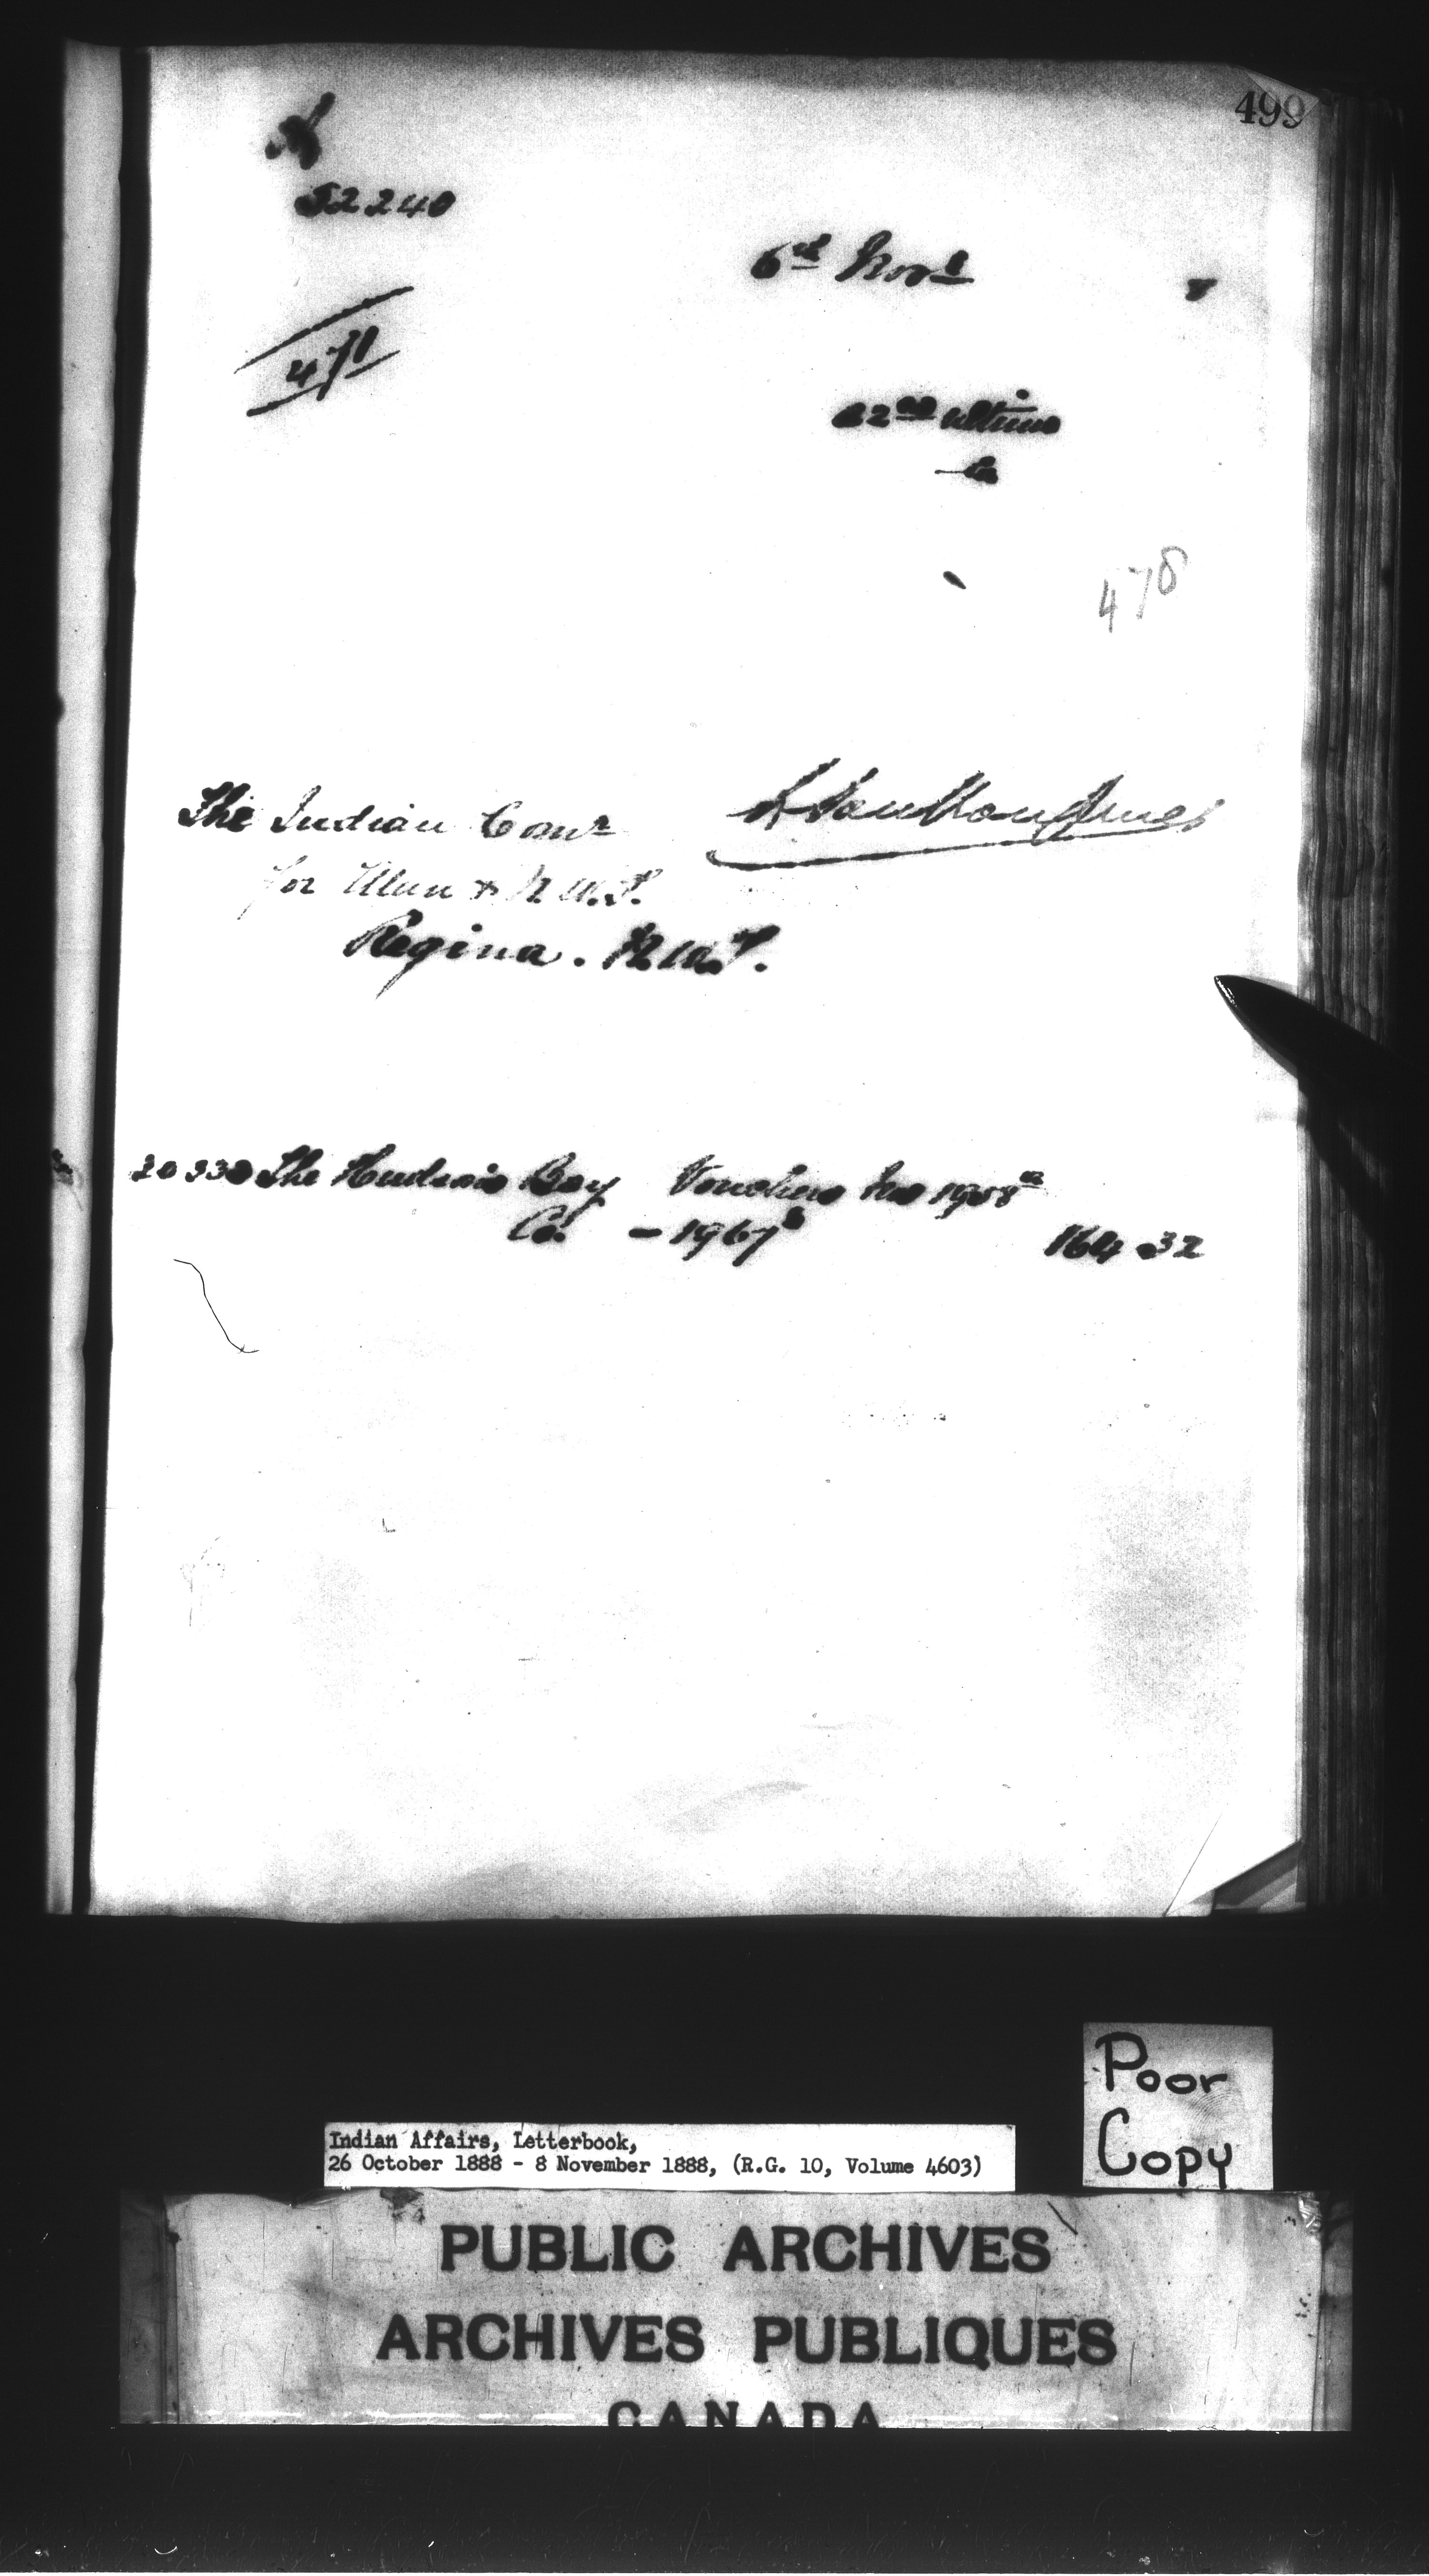 499
52240
6th Novr 8
471
22nd ultimo
478
The Indian Comr
for Man & N.W.T.
Regina. N.W.T.
20330 The Hudson's Bay Vouchers Nos 1958a
Co. - 1967b 164.32
Poor
Copy
Indian Affairs, Letterbook,
26 October 1888 - 8 November 1888, (R.G. 10, Volume 4603)
PUBLIC ARCHIVES
ARCHIVES PUBLIQUES
CANADA